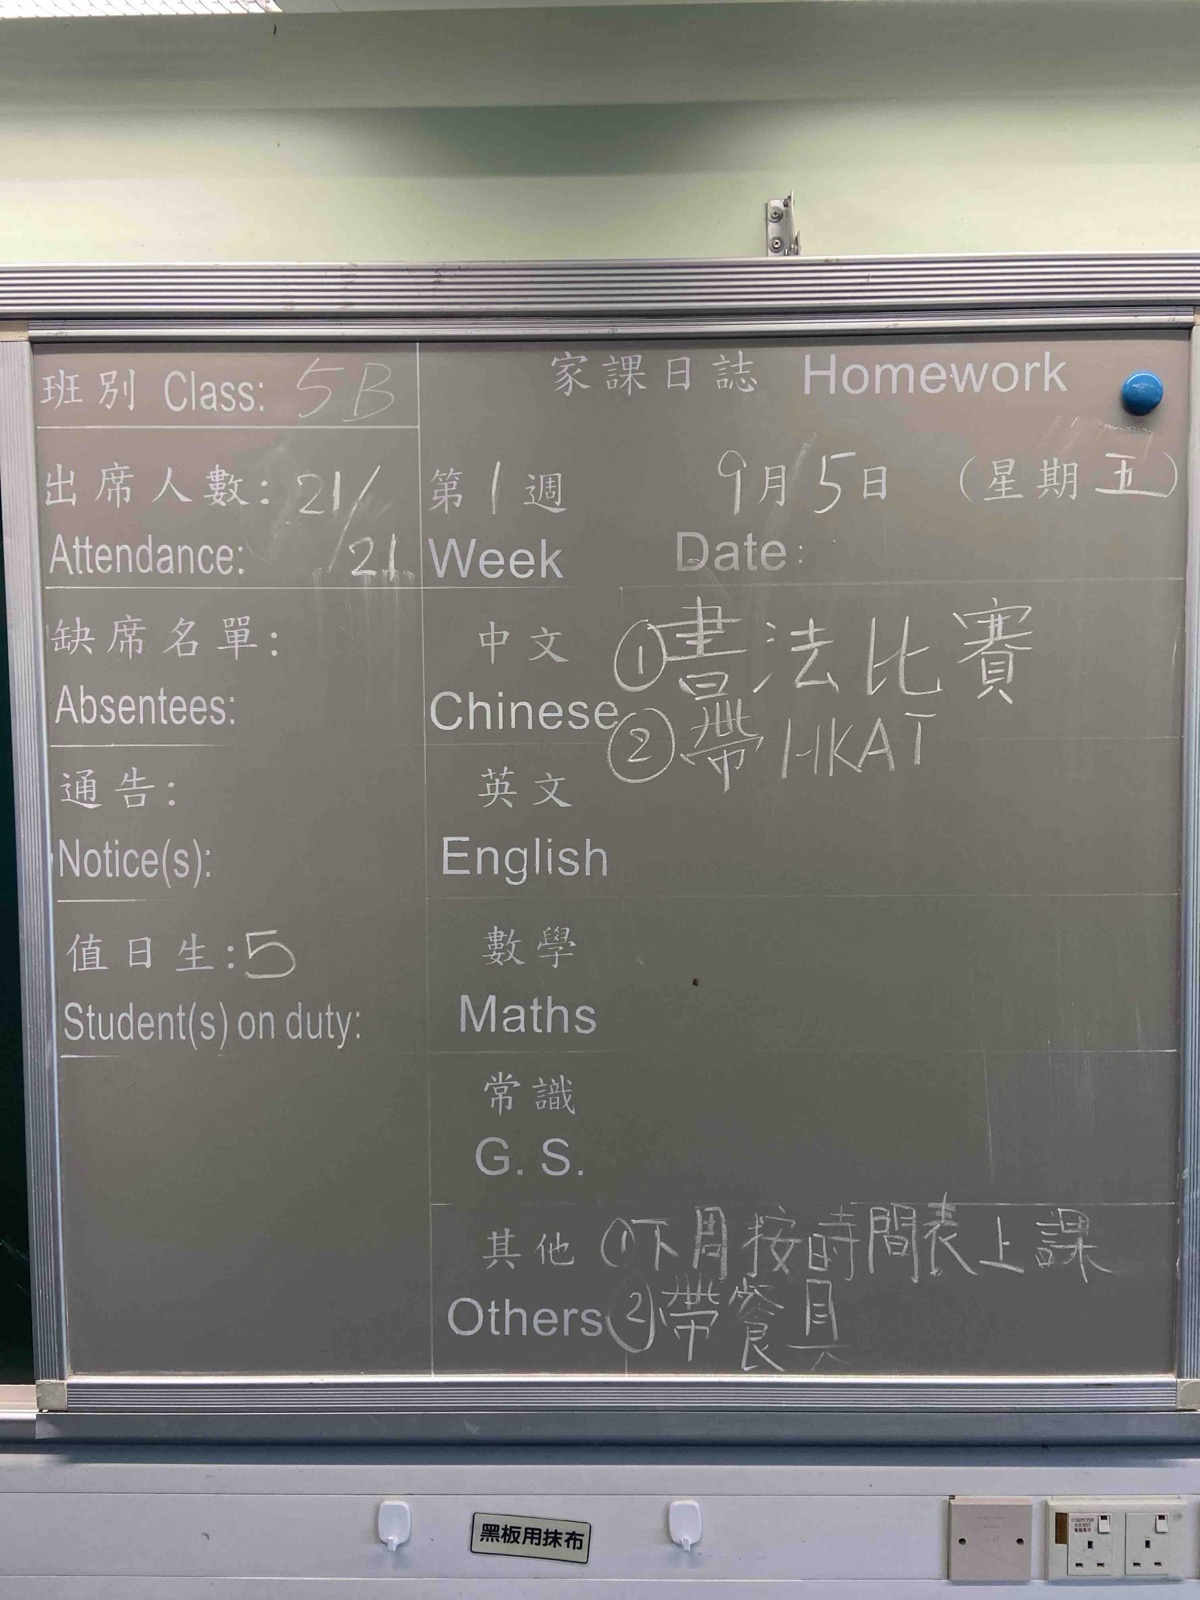 班別 Class: 5B
出席人數: 21/
Attendance: /21
缺席名單:
Absentees:
通告:
Notice(s):
值日生: 5
Student(s) on duty:
家課日誌 Homework
第1週 9月5日 (星期五)
Week Date:
中文 ①書法比賽
Chinese ②帶HKAT
英文
English
數學
Maths
常識
G. S.
其他 ①下周按時間表上課
Others ②帶餐具
黑板用抹布